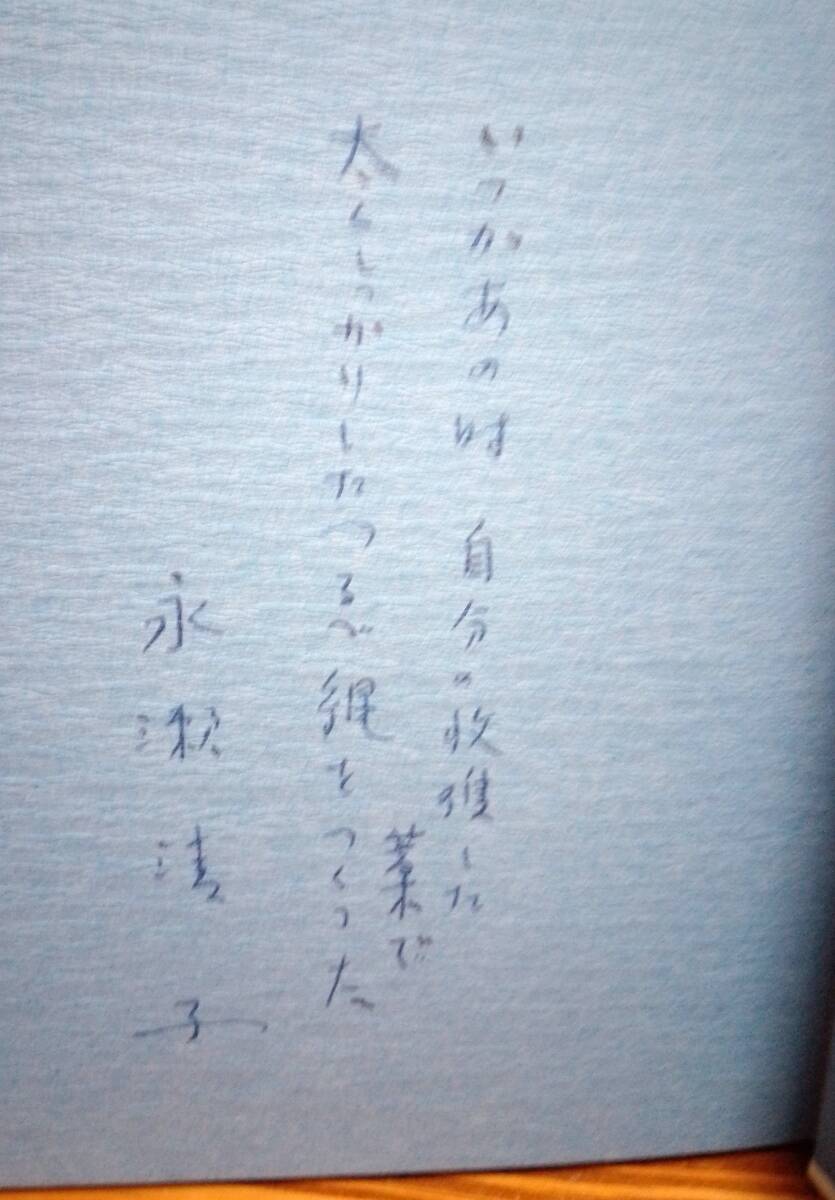 いつかあの時　自分の収穫した
藁で
太くしっかりしたつるべ縄をつくった
永瀬清子